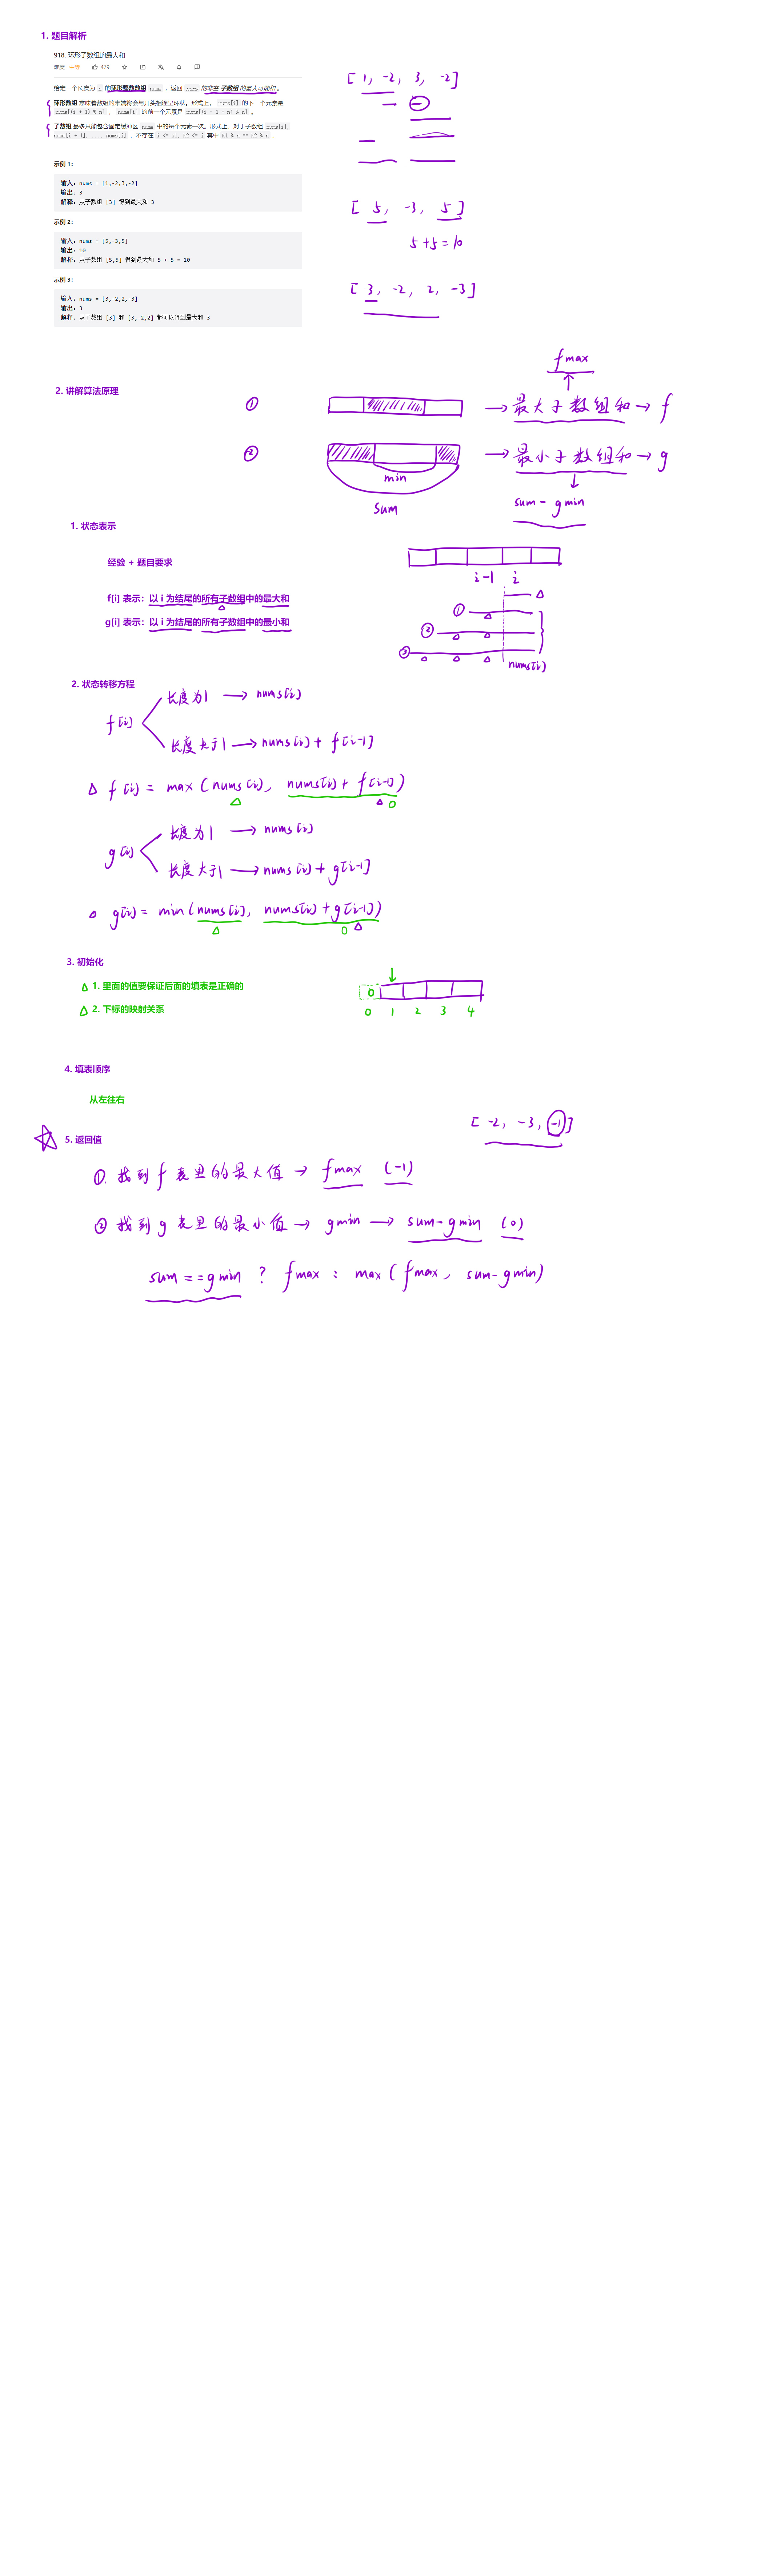 1. 题目解析
918. 环形子数组的最大和
难度 中等 479
给定一个长度为 n 的环形整数数组 nums ，返回 nums 的非空 子数组 的最大可能和 。
环形数组 意味着数组的末端将会与开头相连呈环状。形式上， nums[i] 的下一个元素是
nums[(i + 1) % n] ， nums[i] 的前一个元素是 nums[(i - 1 + n) % n] 。
子数组 最多只能包含固定缓冲区 nums 中的每个元素一次。形式上，对于子数组 nums[i],
nums[i + 1], ..., nums[j] ，不存在 i <= k1, k2 <= j 其中 k1 % n == k2 % n 。
[1, -2, 3, -2]
示例 1：
输入：nums = [1,-2,3,-2]
输出：3
解释：从子数组 [3] 得到最大和 3
[5, -3, 5]
5+5=10
示例 2：
输入：nums = [5,-3,5]
输出：10
解释：从子数组 [5,5] 得到最大和 5 + 5 = 10
[3, -2, 2, -3]
示例 3：
输入：nums = [3,-2,2,-3]
输出：3
解释：从子数组 [3] 和 [3,-2,2] 都可以得到最大和 3
fmax
2. 讲解算法原理
① → 最大子数组和 → f
② → 最小子数组和 → g
min
sum
sum - gmin
1. 状态表示
经验 + 题目要求
i-1 i
f[i] 表示：以 i 为结尾的所有子数组中的最大和
g[i] 表示：以 i 为结尾的所有子数组中的最小和
①
②
③
nums[i]
2. 状态转移方程
f[i]
长度为1 → nums[i]
长度大于1 → nums[i] + f[i-1]
f[i] = max(nums[i], nums[i] + f[i-1])
0
g[i]
长度为1 → nums[i]
长度大于1 → nums[i] + g[i-1]
g[i] = min(nums[i], nums[i] + g[i-1])
0
3. 初始化
1. 里面的值要保证后面的填表是正确的
2. 下标的映射关系
0
0 1 2 3 4
4. 填表顺序
从左往右
[-2, -3, -1]
5. 返回值
①. 找到 f 表里的最大值 → fmax (-1)
② 找到 g 表里的最小值 → gmin → sum-gmin (0)
sum == gmin ? fmax : max(fmax, sum-gmin)